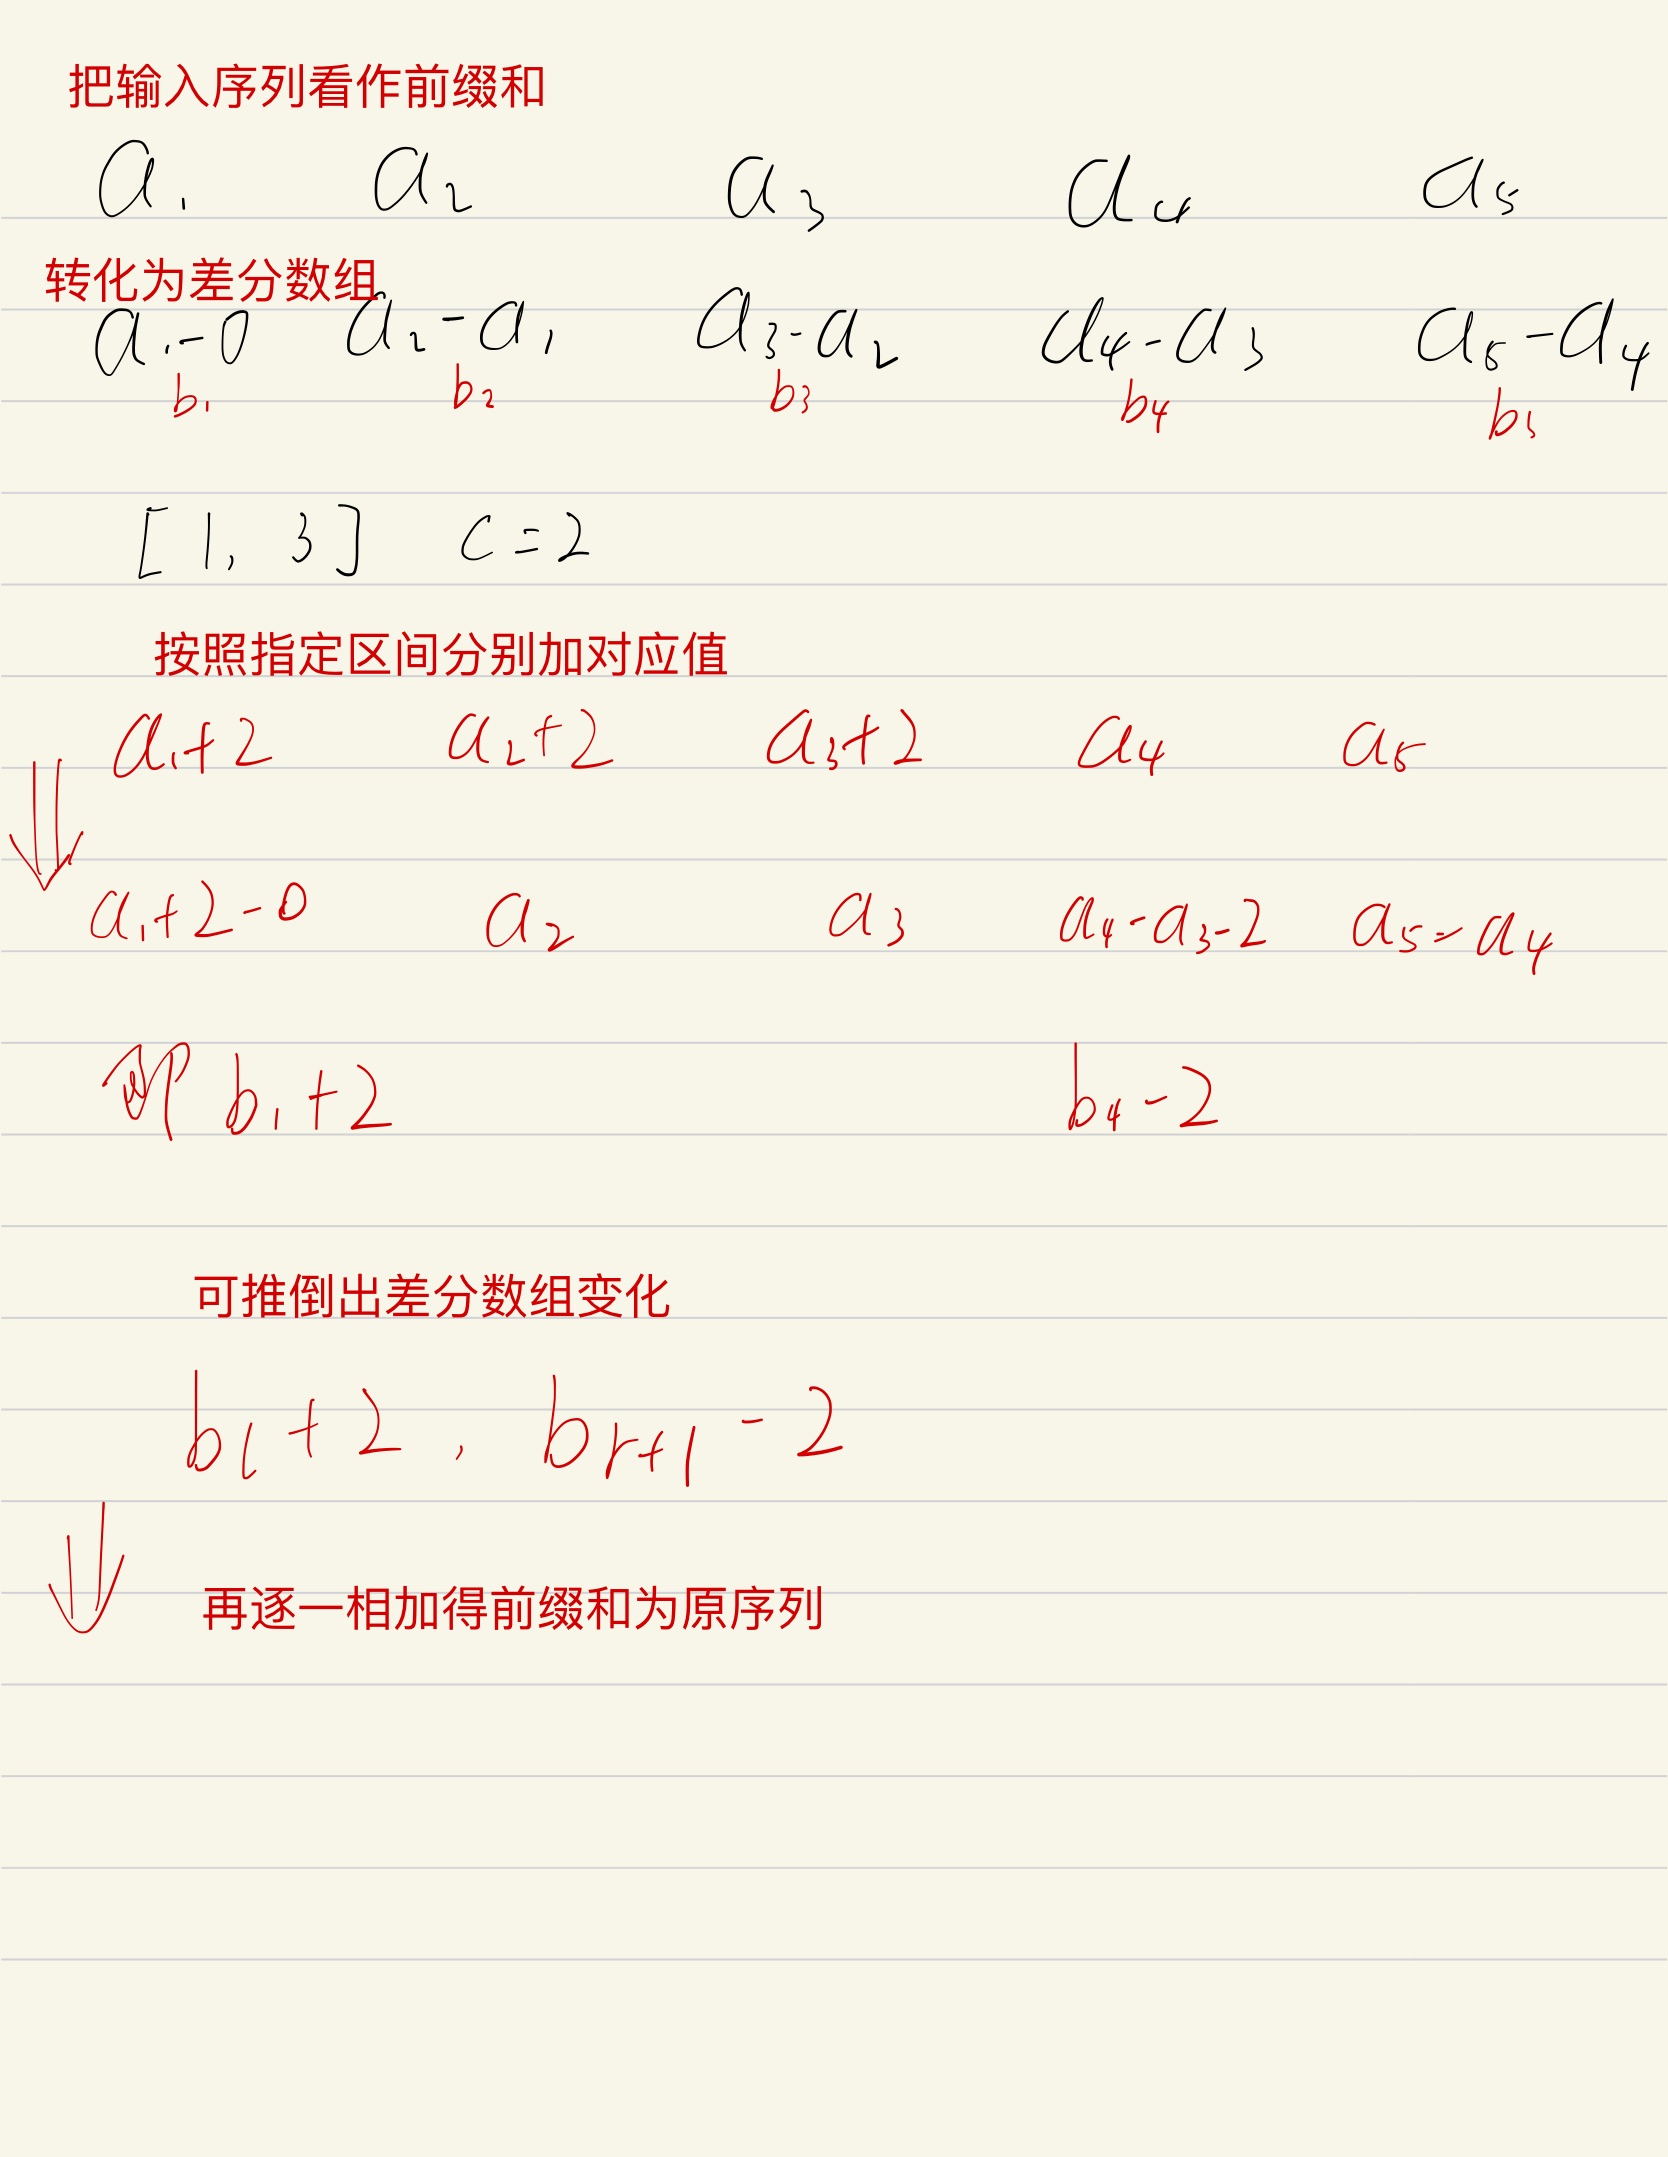 把输入序列看作前缀和
a₁ a₂ a₃ a₄ a₅
转化为差分数组
a₁-0 a₂-a₁ a₃-a₂ a₄-a₃ a₅-a₄
b₁ b₂ b₃ b₄ b₅
[1, 3] c=2
按照指定区间分别加对应值
a₁+2 a₂+2 a₃+2 a₄ a₅
a₁+2-0 a₂ a₃ a₄-a₃-2 a₅-a₄
即 b₁+2 b₄-2
可推倒出差分数组变化
bₗ+2 , bᵣ₊₁-2
再逐一相加得前缀和为原序列